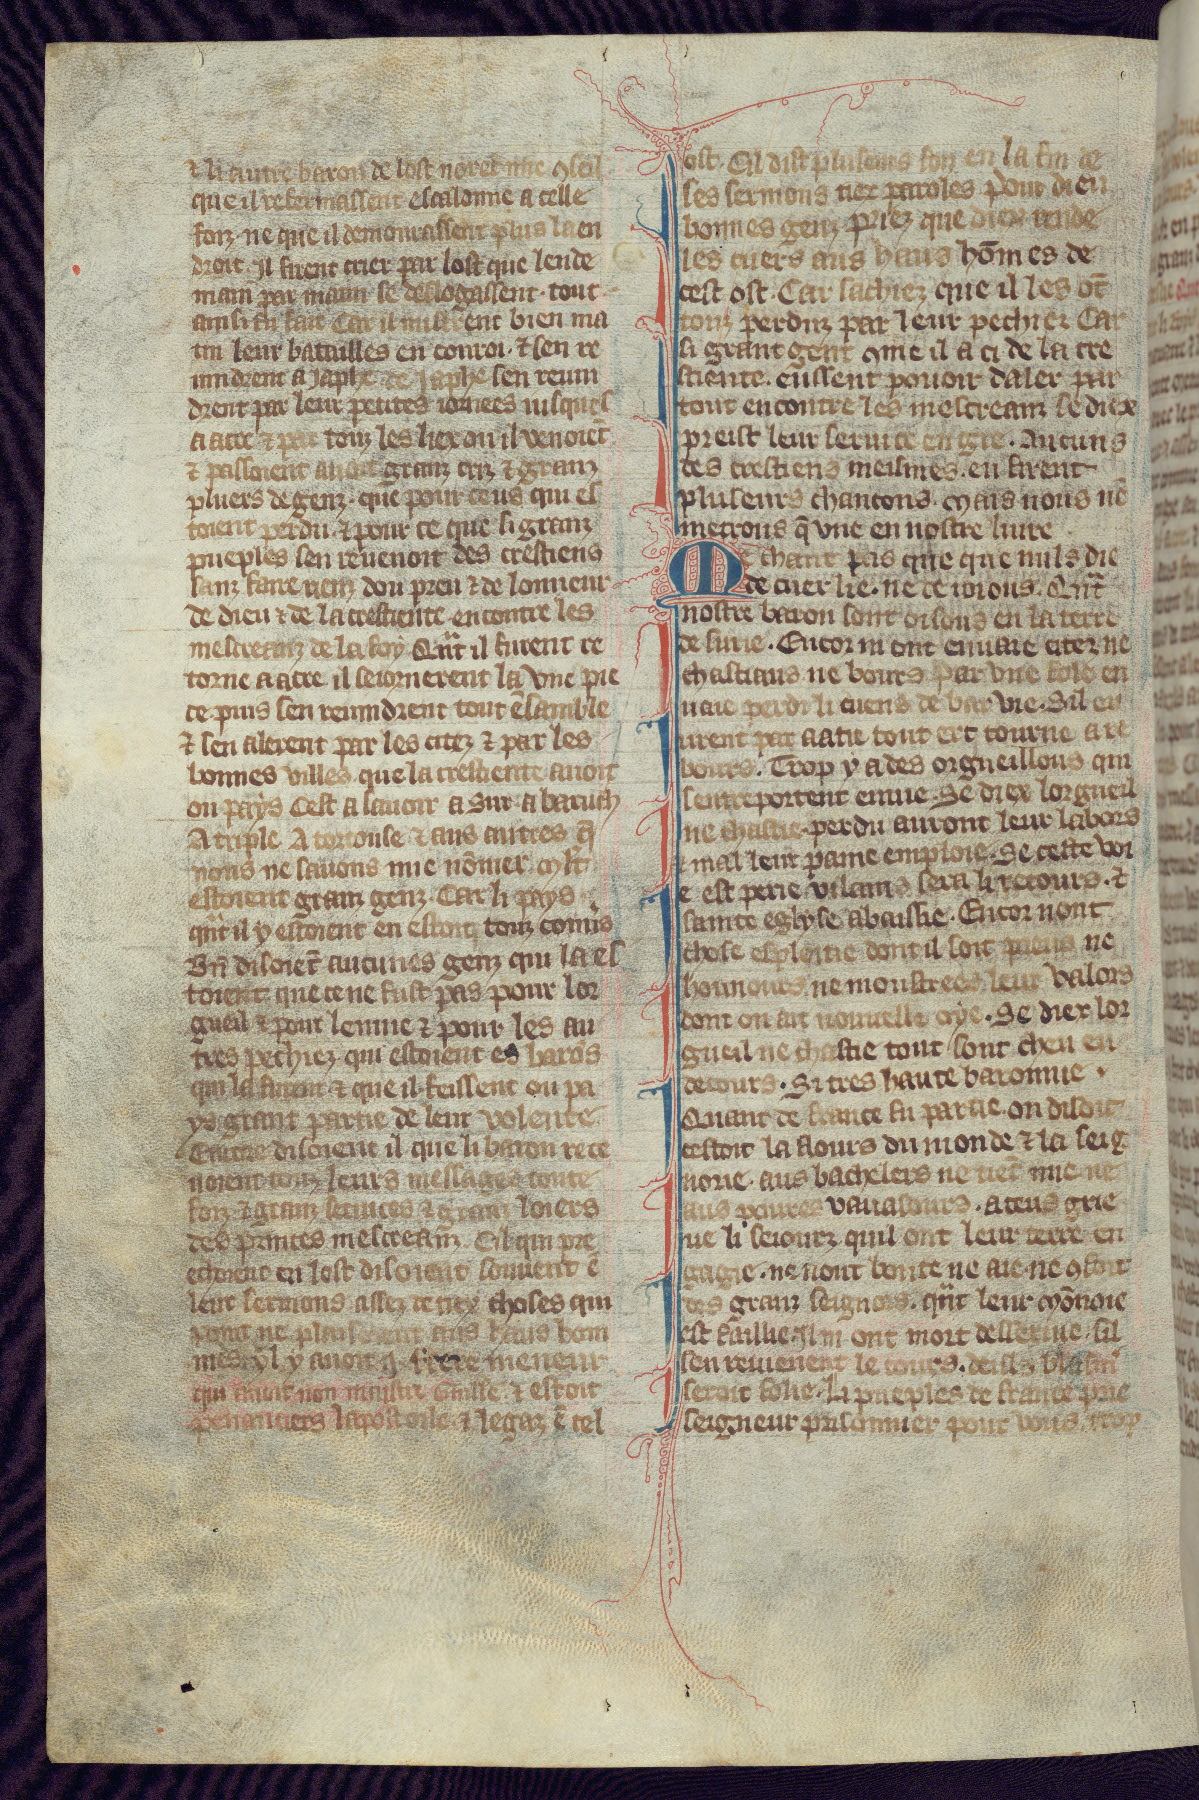 ⁊ li autre baron de lost norēt mie ꝯseil
que il refermassent escalonne a celle
foiz. ne que il demourassent plus la en
droit. Il firent crier par lost que lende
main par matin se deslogassent. tout
ainsi fu fait Car il mistrent bien ma
tin leur batailles en couroi. ⁊ sen re
vindrent a Japhe. de Japhe sen revin
drent par leur petites iornees iusques
a acre ⁊ par touz les liex ou il venoiēt
⁊ passoient avoit granz criz ⁊ granz
pluers de genz. que pour ceus qui es
toient perdu. ⁊ pour ce que si granz
pueples sen revenoit des crestiens
sanz faire riens dou preu ⁊ de lonneur
de dieu ⁊ de la crestiente. encontre les
mescreanz de la foy. Qn̄t il furent re
torne a acre il seiornerent la vne pie
ce. puis sen revindrent tout ēsamble
⁊ sen alerent par les citez ⁊ par les
bonnes villes. que la crestiente avoit
ou pays Cest a savoir a Sur. a baruth
A triple A tortouse ⁊ aus autres q̄
nous ne savons mie nōmer.
estoient granz genz. Car li pays
qn̄t il y estoient en estoit touz comūs
Bn̄ disoiēt aucunes genz qui la es
toient. que ce ne fust pas pour lor
gueil ⁊ pour lenuie ⁊ pour les au
tres pechiez. qui estoient es barōs
qui la furent ⁊ que il feissent ou pa
ys grant partie de leur volente.
Encore disoient il que li baron rece
noient touz leurs messages toute
foiz. ⁊ granz services ⁊ granz loiers
des princes mescreanz. Cil qui pre
echoient en lost disoient souvent ē
leur sermons assez de tiex choses qui
point ne plaisoient aus haus hom
mes. yl y avoit .j. frere meneur
qui avoit non maistre Guille. ⁊ estoit
penanciers lapostoile. ⁊ legaz ē cel
ost. Cil dist pluseurs foiz en la fin de
ses sermons tiex paroles. pour dieu
bonnes genz priez que diex rende
les cuers aus haus hōmes de
cest ost. Car sachiez que il les ōt
touz perduz par leur pechiez Car
si grant gent ꝯme il a ci de la cre
stiente. eussent pouoir daler par
tout encontre les mescreanz se diex
preist leur service en gre. Aucuns
des crestiens meismes. en firent
pluseurs chancons. Mais nous nē
metrons q̄ vne en nostre livre
Ne chant pas que que nuls die
de cuer lie. ne de ioious. Qn̄t
nostre baron sont oisous en la terre
de surie. Encor ni ont envaie citez ne
chastiaus ne bours. Par vne fole en
vaie perdi li cuens de bar vie. Sil en
urent par aatie tout ert tourne a re
bours. Trop y a des orgueillous qui
sentreportent enuie. Se diex lorgueil
ne chastie. perdu auront leur labors
⁊ mal leur paine emploie. Se ceste voi
e est perie vilains sera li retours. ⁊
sainte eglyse abaissie. Encor nont
chose esploitie dont il soit preus ne
hounours. ne monstrees leur valors
dont on ait nouvelle oye. Se diex lor
gueil ne chastie tout sont cheu en
decours. Si tres haute baronnie.
Quant de france fu partie. on disoit
cestoit la flours du monde ⁊ la seig
norie. aus bachelers ne tiēt mie ne
aus povres vavasours. a ceus grie
ve li seiourz quil ont leur terre en
gagie. ne nont bonte ne aie. ne ꝯfort
des granz seignors. qn̄t leur mōnoie
est faillie. Il ni ont mort desservie. sil
sen revienent le cours. deuls blasm̄
seroit folie. Li pueples de france prie
seigneur prisonnier pour vous. trop